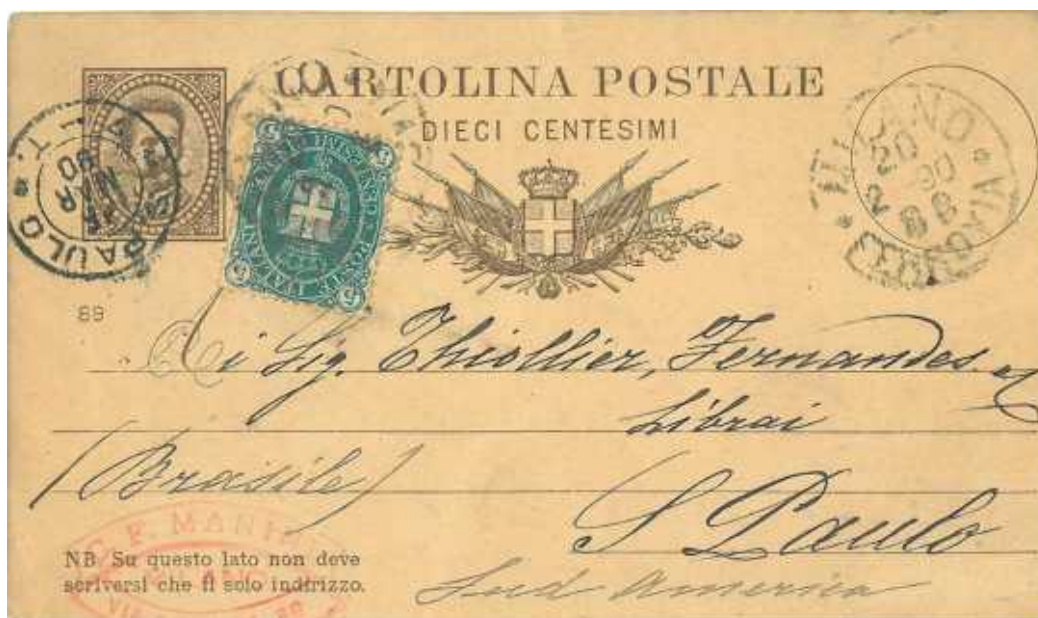 CARTOLINA POSTALE
DIECI CENTESIMI
5 5
5 5
MILANO
20
2 88
FERROVIA
PAULO
89
Ai Sig. Thiollier, Fernandes
Librai
(Brasile)
S Paulo
Sud America
C. F. MANI
NB Su questo lato non deve
scriversi che il solo indirizzo.